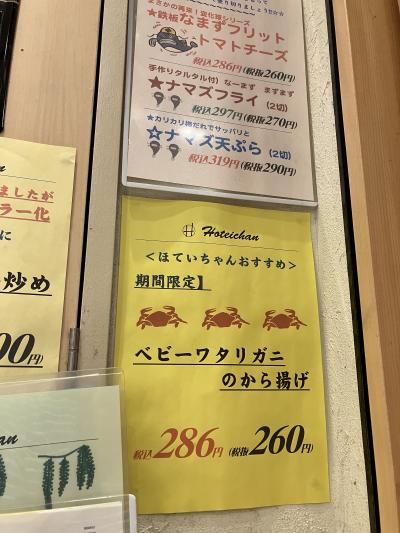 まさかの再来!変化球シリーズ
★鉄板なまずフリット
トマトチーズ
税込286円(税抜260円)
手作りタルタル付)なーまず まずまず
★ナマズフライ(2切)
税込297円(税抜270円)
★カリカリ梅だれでサッパリと
☆ナマズ天ぷら(2切)
税込319円(税抜290円)
chan
ましたが
ラー化
に
炒め
00円)
an
Hoteichan
<ほていちゃんおすすめ>
期間限定】
ベビーワタリガニ
のから揚げ
税込286円(税抜260円)